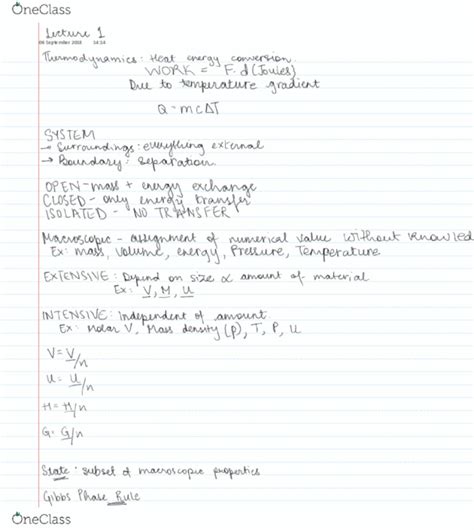 OneClass
Lecture 1
06 September 2018 14:14
Thermodynamics: Heat energy conversion.
WORK = F·d (Joules)
Due to temperature gradient
Q = mcΔT
SYSTEM
→ Surroundings: everything external
→ Boundary: separation.
OPEN - mass + energy exchange
CLOSED - only energy transfer
ISOLATED - NO TRANSFER
Macroscopic - assignment of numerical value without knowled
Ex: mass, volume, energy, Pressure, Temperature.
EXTENSIVE: Depend on size & amount of material
Ex: V, M, U
INTENSIVE: Independent of amount.
Ex: Molar V, Mass density (ρ), T, P, U
V = V/n
U = U/n
H = H/n
G = G/n
State: subset of macroscopic properties
Gibbs Phase Rule
OneClass